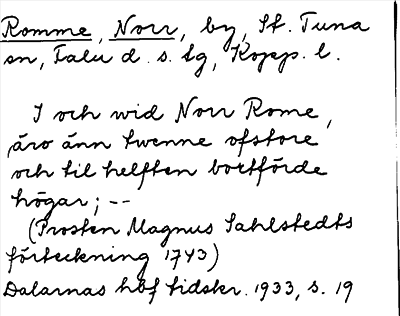 Romme, Norr, by, St. Tuna
sn, Falu d. s. lg, Kopp. l.
I och wid Norr Rome,
äro änn twenne ofstore
och til helften bortförde
högar; --
(Prosten Magnus Sahlstedts
förteckning 1743)
Dalarnas hbf tidskr. 1933, s. 19